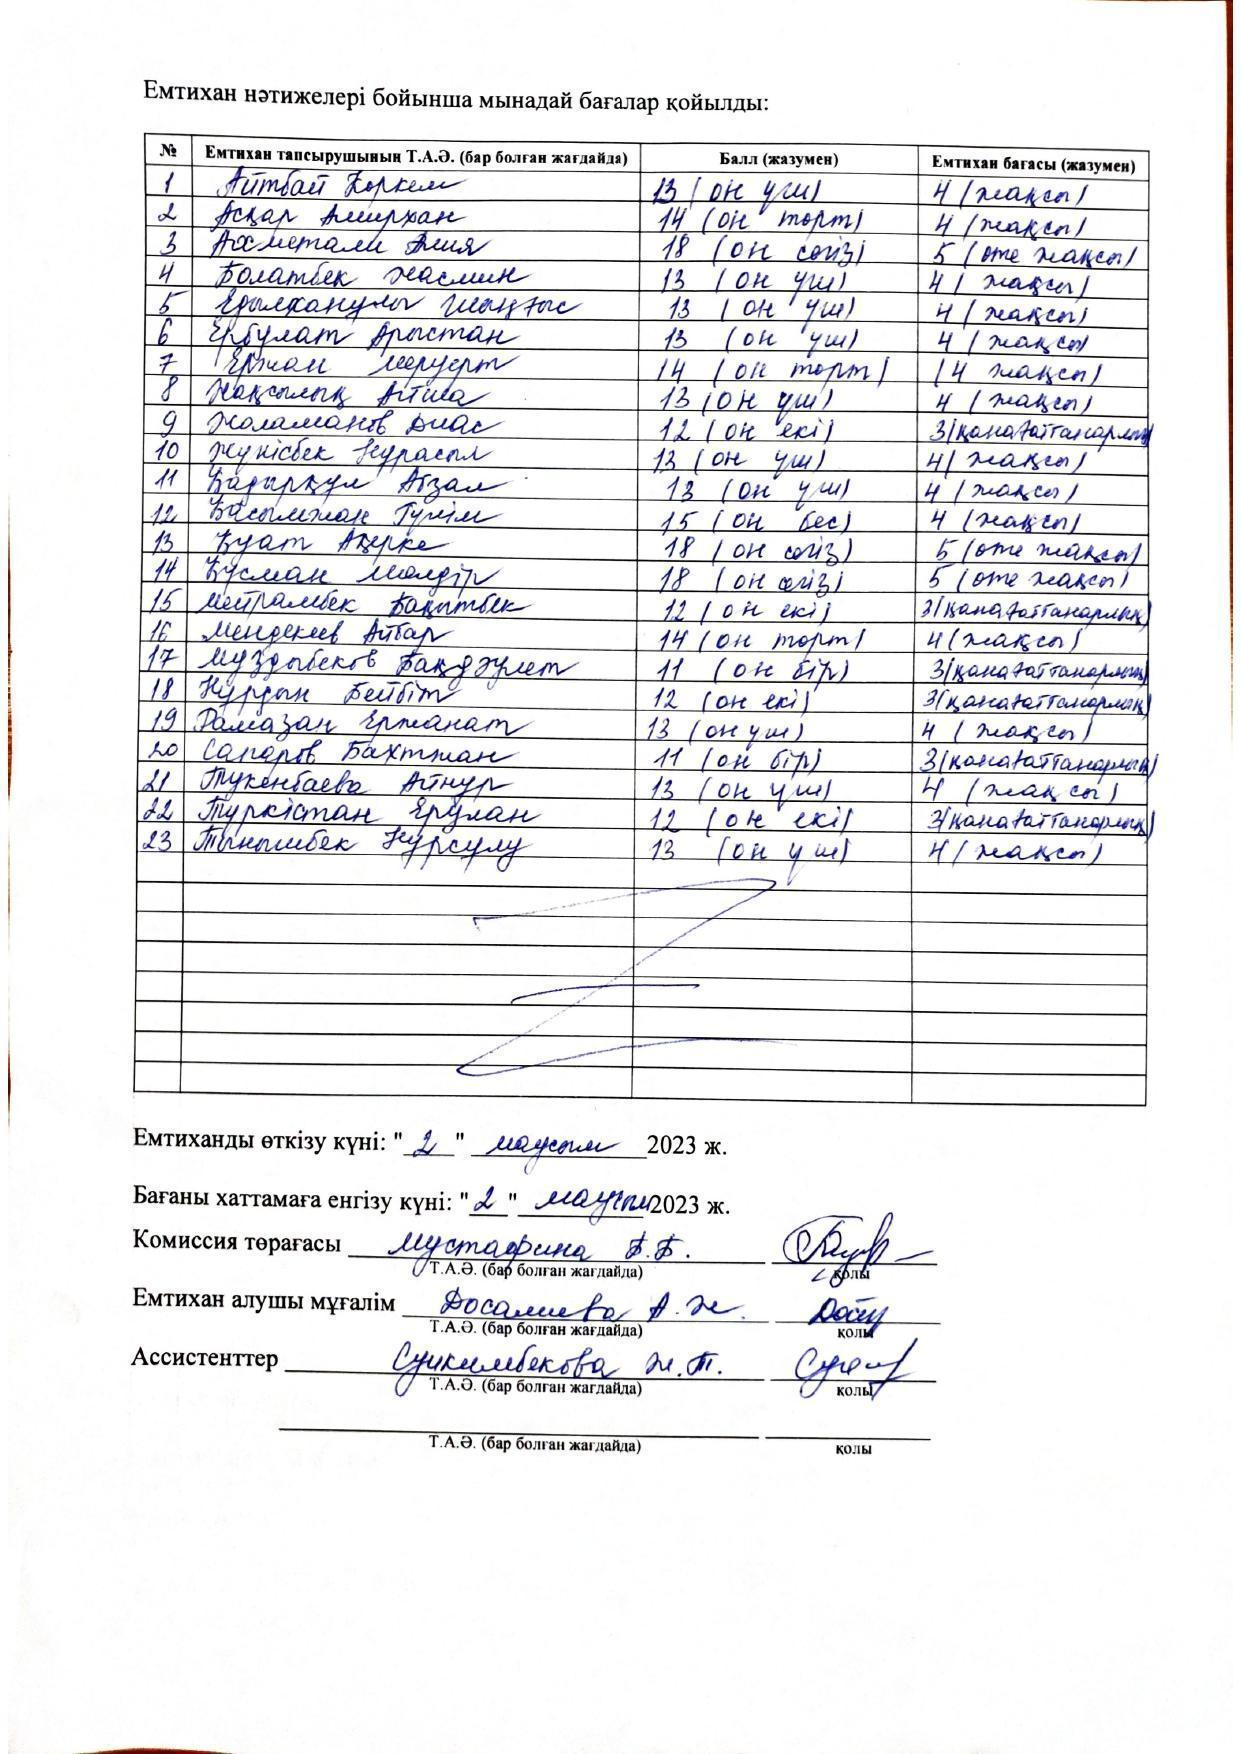 Емтихан нәтижелері бойынша мынадай бағалар қойылды:
№ Емтихан тапсырушының Т.А.Ә. (бар болған жағдайда) Балл (жазумен) Емтихан бағасы (жазумен)
1 Айтбай Көркем 13 (он үш) 4 (жақсы)
2 Асқар Амирхан 14 (он төрт) 4 (жақсы)
3 Ахметали Әлия 18 (он сегіз) 5 (өте жақсы)
4 Болатбек Жасмин 13 (он үш) 4 (жақсы)
5 Едылханулы Шыңғыс 13 (он үш) 4 (жақсы)
6 Ербулат Арыстан 13 (он үш) 4 (жақсы)
7 Ержан Меруерт 14 (он төрт) (4 жақсы)
8 Жақсылық Айша 13 (он үш) 4 (жақсы)
9 Жаламанов Диас 12 (он екі) 3 (қанағаттанарлық)
10 Жүнісбек Нұрасыл 13 (он үш) 4 (жақсы)
11 Қадырқұл Абзал 13 (он үш) 4 (жақсы)
12 Қасымжан Гүлім 15 (он бес) 4 (жақсы)
13 Қуат Ақерке 18 (он сегіз) 5 (өте жақсы)
14 Құсман Мөлдір 18 (он сегіз) 5 (өте жақсы)
15 Мейрамбек Бақытбек 12 (он екі) 3 (қанағаттанарлық)
16 Мендекеев Айбар 14 (он төрт) 4 (жақсы)
17 Мұздыбеков Бақдәулет 11 (он бір) 3 (қанағаттанарлық)
18 Нұрдын Бейбіт 12 (он екі) 3 (қанағаттанарлық)
19 Рамазан Ержанат 13 (он үш) 4 (жақсы)
20 Сапаров Бахтжан 11 (он бір) 3 (қанағаттанарлық)
21 Тукенбаева Айнур 13 (он үш) 4 (жақсы)
22 Түркістан Ерулан 12 (он екі) 3 (қанағаттанарлық)
23 Тынышбек Нұрсұлу 13 (он үш) 4 (жақсы)
Емтиханды өткізу күні: "2" маусым 2023 ж.
Бағаны хаттамаға енгізу күні: "2" маусым 2023 ж.
Комиссия төрағасы Мустафина Б.Б.
Т.А.Ә. (бар болған жағдайда) қолы
Емтихан алушы мұғалім Досалиева А.Ж.
Т.А.Ә. (бар болған жағдайда) қолы
Ассистенттер Суикимбекова Ж.Т.
Т.А.Ә. (бар болған жағдайда) қолы
Т.А.Ә. (бар болған жағдайда) қолы